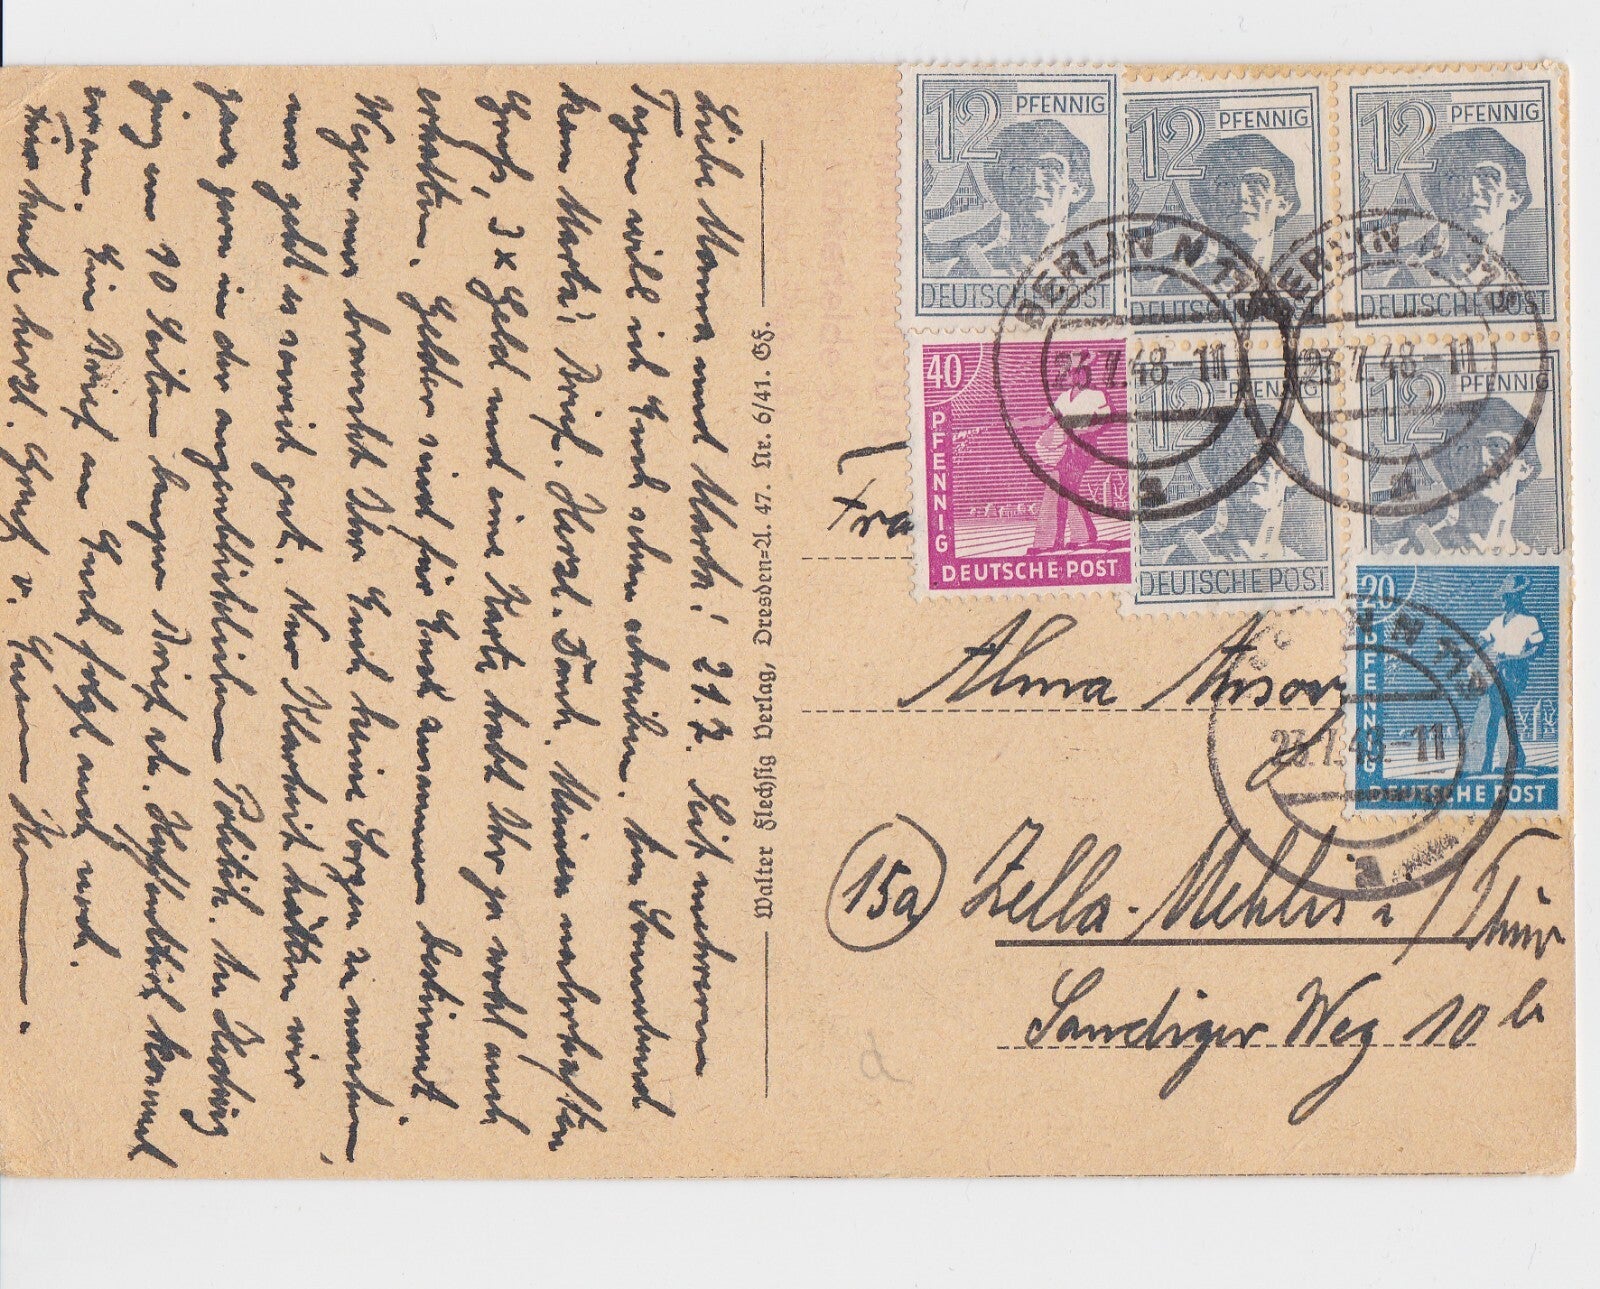 Liebe Mama und Marta! 21.7. Seit mehreren
Tagen will ich Euch schon schreiben. Am Sonnabend
kam Marta's Brief. Herzl. Dank. Meinen
Gruß, 3x Geld und eine Karte habt Ihr ja wohl auch
erhalten. Gelder sind für Euch zusammen bestimmt.
Wegen uns braucht Ihr Euch keine Sorgen zu machen,
uns geht es soweit gut. Nur Klarheit hätten wir
ganz gern in der augenblicklichen Politik. An Hedwig
ging ein 90 Seiten langer Brief ab. Hoffentlich kommt
er an. Ein Brief an Euch folgt auch noch.
Für heute herzl. Gruß v. Eurem
Walter Flechsig Verlag, Dresden=A. 47. Nr. 6/41. GF.
12 PFENNIG
DEUTSCHE POST
12 PFENNIG
DEUTSCHE POST
12 PFENNIG
DEUTSCHE POST
40 PFENNIG
DEUTSCHE POST
12 PFENNIG
DEUTSCHE POST
12 PFENNIG
20 PFENNIG
DEUTSCHE POST
BERLIN N
23.7.48.-11
a
BERLIN
23.7.48.-11
a
N
23.7.48.-11
a
Fra
Alma
15a Zella-Mehlis / Thür
Sandiger Weg 10 b
d